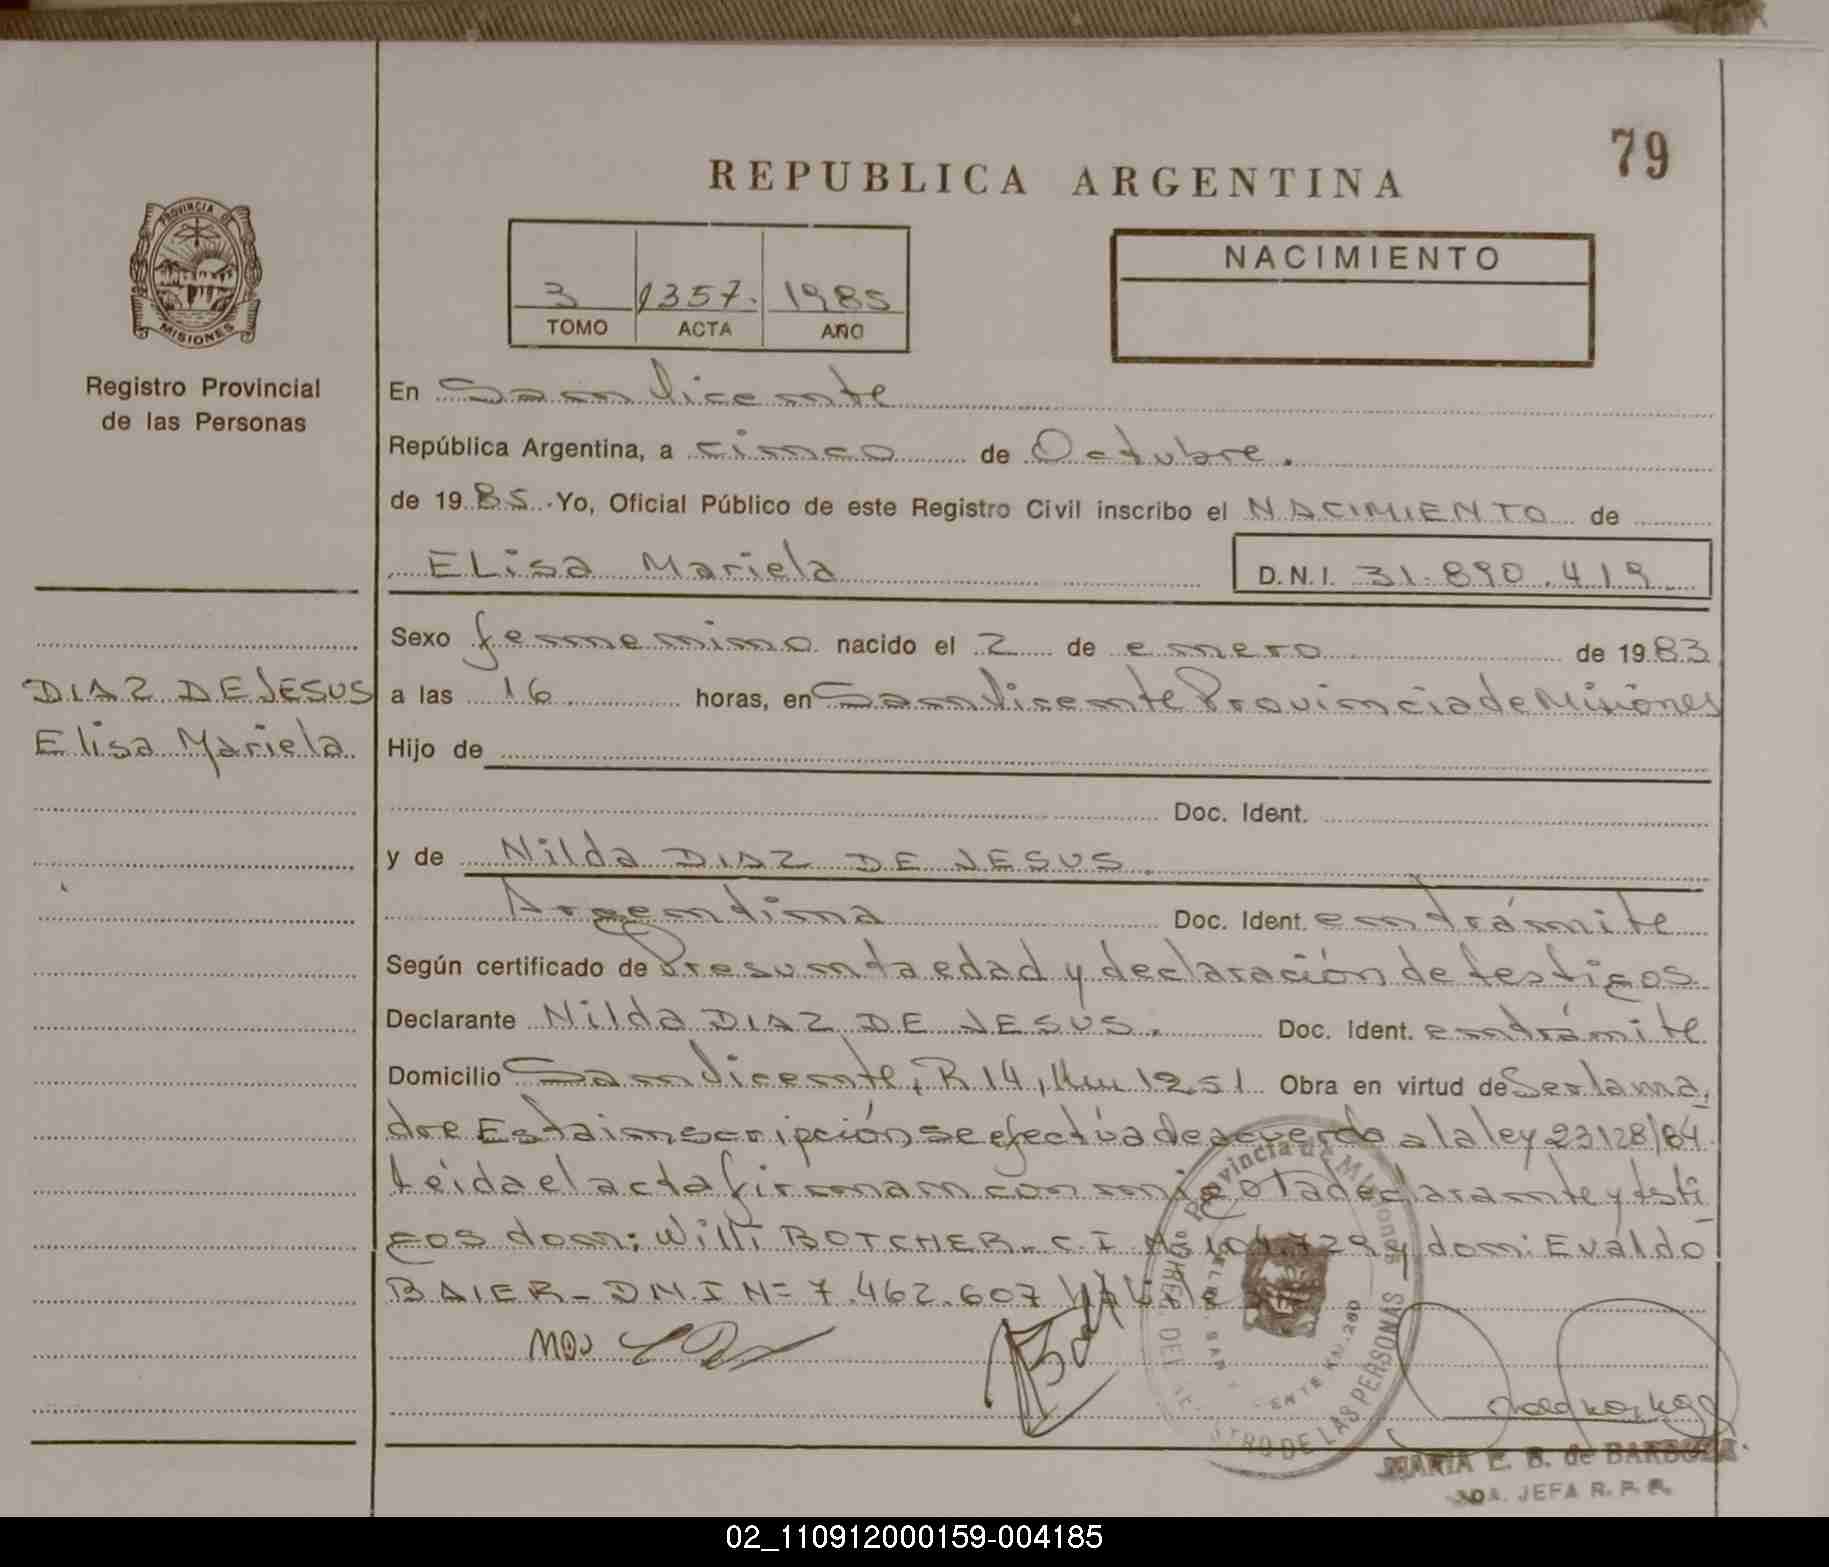 79
REPUBLICA ARGENTINA
PROVINCIA DE
MISIONES
Registro Provincial
de las Personas
3 1357. 1985
TOMO ACTA AÑO
NACIMIENTO
En San Vicente
República Argentina, a cinco de Octubre.
de 1985. Yo, Oficial Público de este Registro Civil inscribo el NACIMIENTO de
ELisa Mariela D.N.I. 31.890.419
Sexo femenino nacido el 2 de enero de 1983
DIAZ DE JESUS
Elisa Mariela
a las 16 horas, en San Vicente Provincia de Misiones
Hijo de
Doc. Ident.
y de Nilda DIAZ DE JESUS.
Argentina Doc. Ident. en trámite
Según certificado de Presunta edad y declaración de testigos
Declarante Nilda DIAZ DE JESUS. Doc. Ident. en trámite
Domicilio San Vicente, R 14, Km 1251 Obra en virtud de Ser la ma
dre Esta inscripción se efectúa de acuerdo a la ley 23128/84
Leida el acta firman conmigo la declarante y testi
gos don: Willi BOTCHER - C.I Nº 104.729 y don: Evaldo
BAIER - DNI N= 7.462.607
Provincia de Misiones
DE LAS PERSONAS
MARIA E. B. de BARBOZA
JEFA R. P. P.
02_110912000159-004185